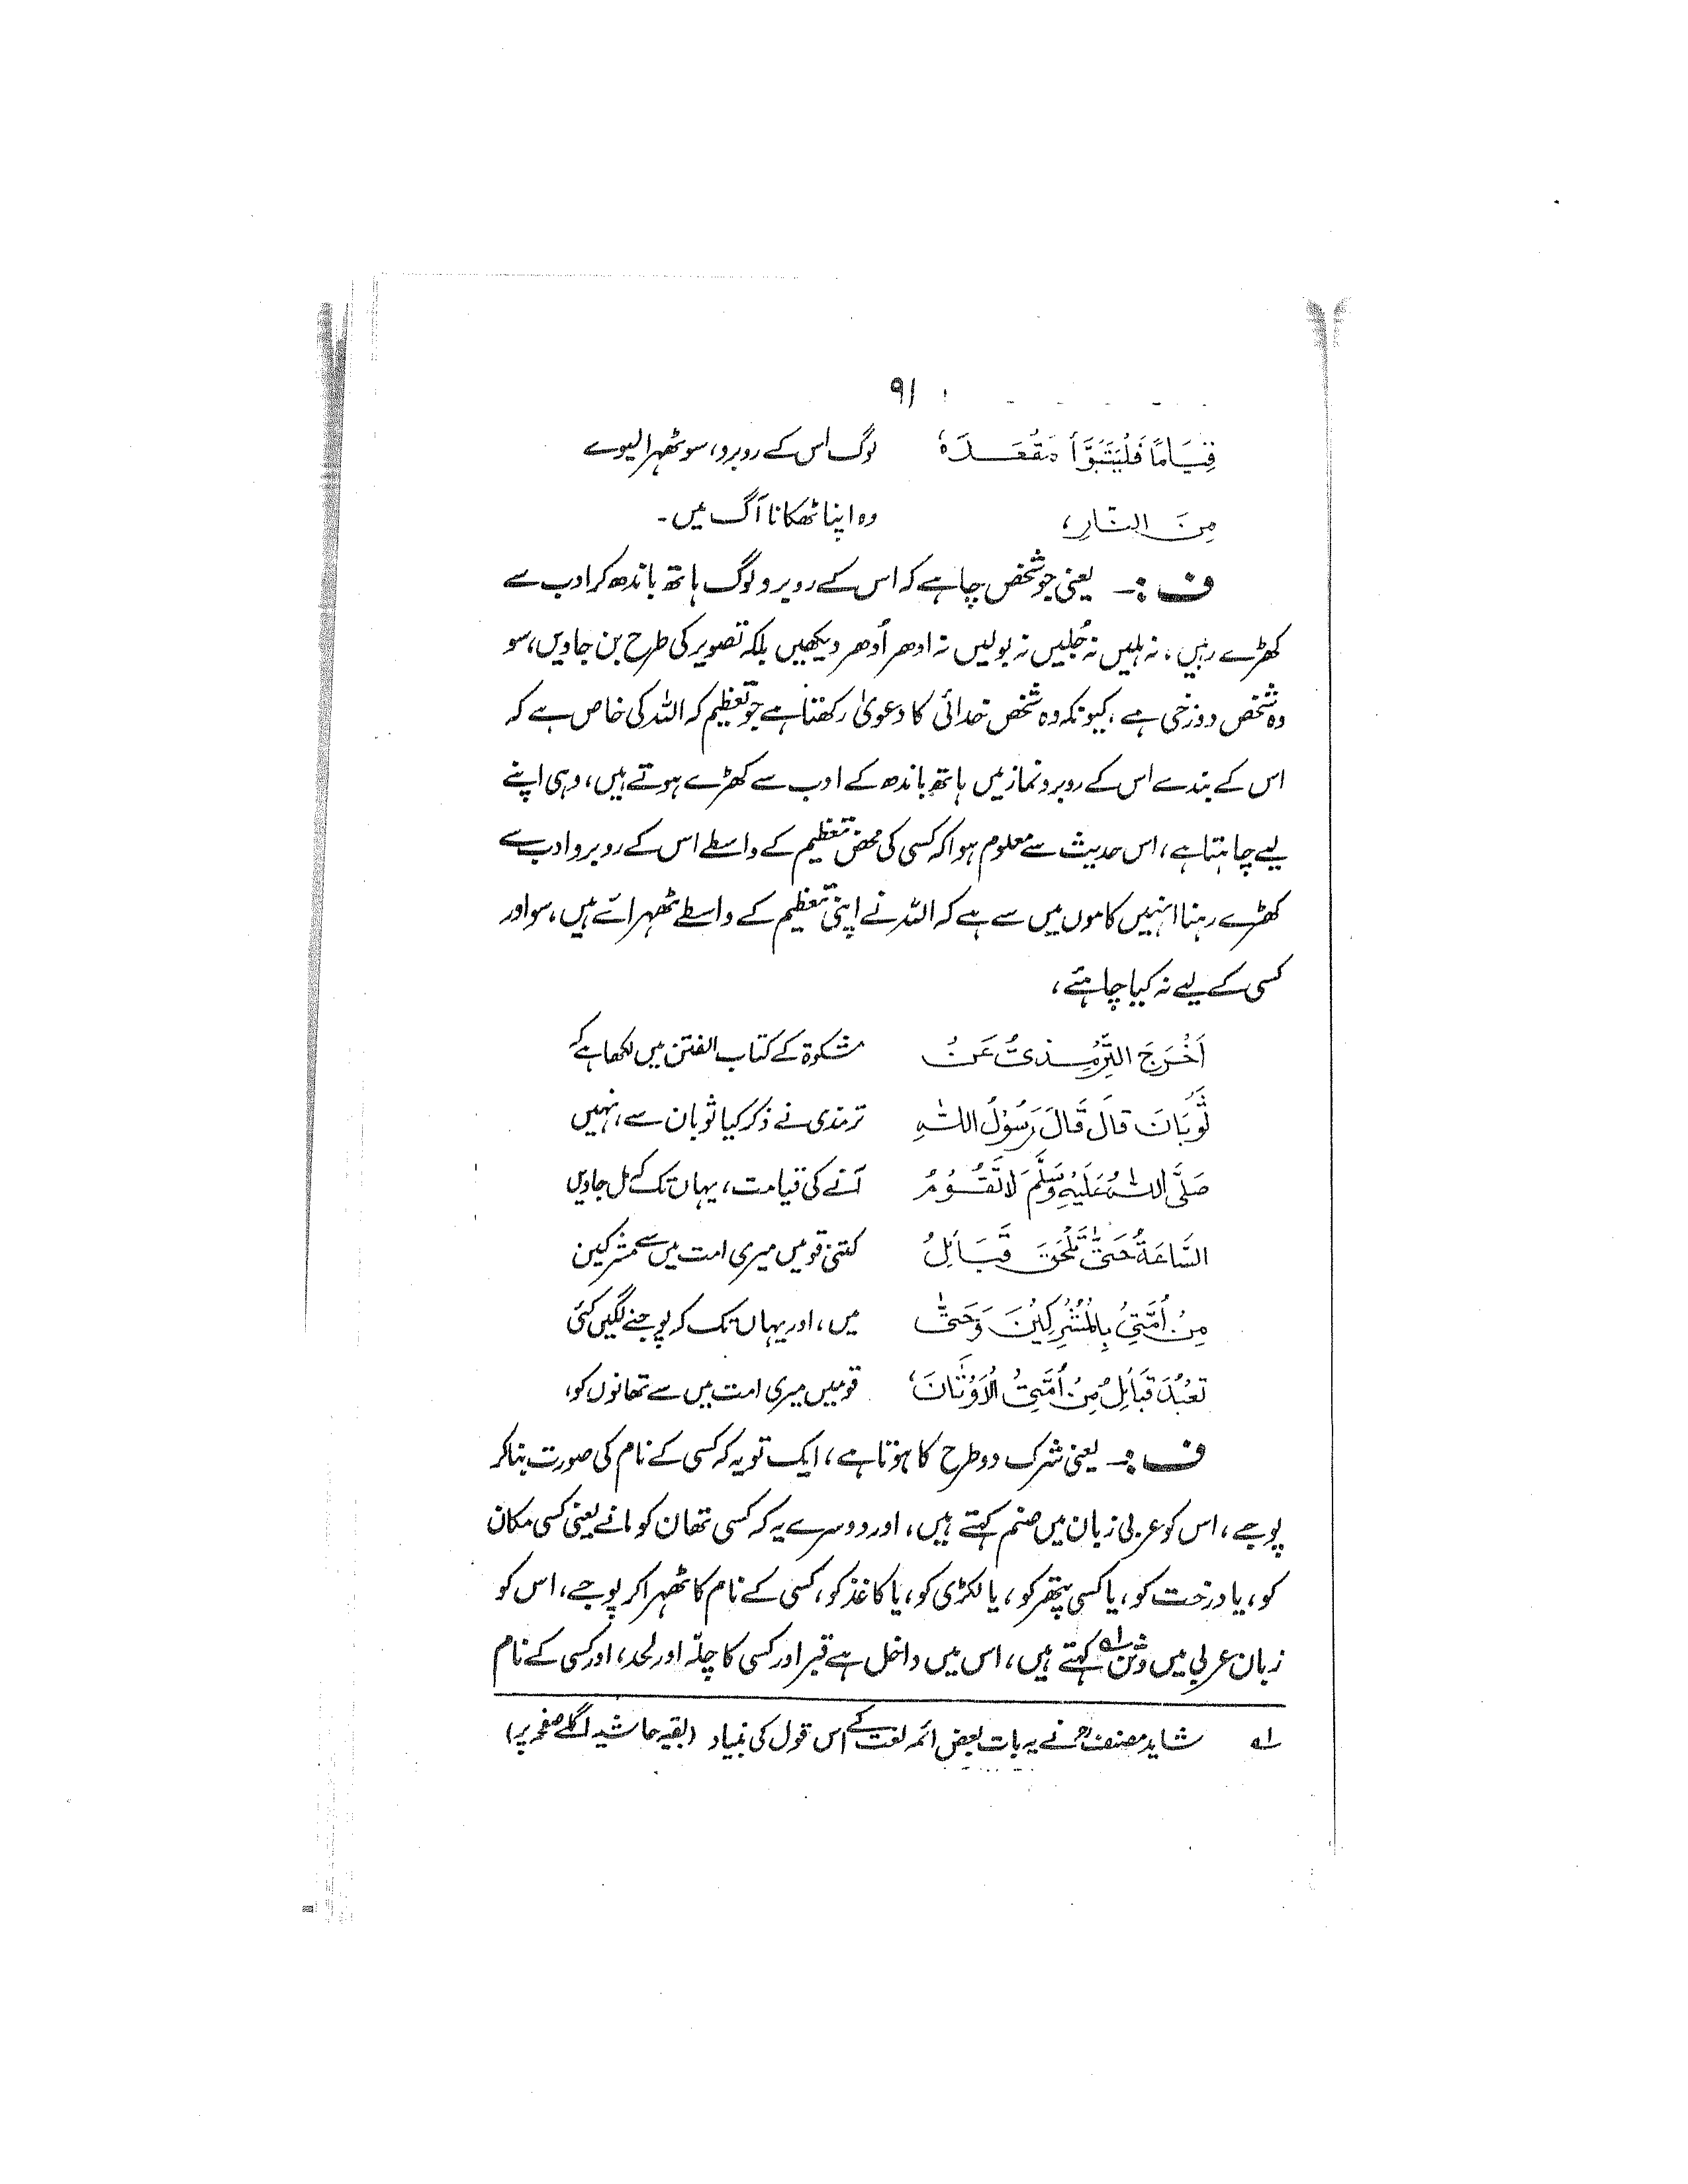 ۹۱
قِيَامًا فَلْيَتَبَوَّأْ مَقْعَدَهٗ لوگ اس کے روبرو، سو ٹھہرا لیوے
مِنَ النَّارِ، وہ اپنا ٹھکانا آگ میں۔
ف:۔ یعنی جو شخص چاہے کہ اس کے روبرو لوگ ہاتھ باندھ کر ادب سے
کھڑے رہیں، نہ ہلیں نہ جُلیں نہ بولیں نہ ادھر اُدھر دیکھیں بلکہ تصویر کی طرح بن جاویں، سو
وہ شخص دوزخی ہے، کیونکہ وہ شخص خدائی کا دعویٰ رکھتا ہے جو تعظیم کہ اللہ کی خاص ہے کہ
اس کے بندے اس کے روبرو نماز میں ہاتھ باندھ کے ادب سے کھڑے ہوتے ہیں، وہی اپنے
لیے چاہتا ہے، اس حدیث سے معلوم ہوا کہ کسی کی محض تعظیم کے واسطے اس کے روبرو ادب سے
کھڑے رہنا انہیں کاموں میں سے ہے کہ اللہ نے اپنی تعظیم کے واسطے ٹھہرائے ہیں، سو اور
کسی کے لیے نہ کیا چاہئے،
اَخْرَجَ التِّرْمِذِیُّ عَنْ مشکوٰۃ کے کتاب الفتن میں لکھا ہے کہ
ثَوْبَانَ قَالَ قَالَ رَسُوْلُ اللهِ ترمذی نے ذکر کیا ثوبان سے، نہیں
صَلَّی اللهُ عَلَيْهِ وَسَلَّمَ لَا تَقُوْمُ آنے کی قیامت، یہاں تک کہ مل جاویں
السَّاعَةُ حَتّٰی تَلْحَقَ قَبَائِلُ کتنی قومیں میری امت میں سے مشرکین
مِنْ اُمَّتِیْ بِالْمُشْرِكِيْنَ وَحَتّٰی میں، اور یہاں تک کہ پوجنے لگیں کئی
تَعْبُدَ قَبَائِلُ مِنْ اُمَّتِیْ الْاَوْثَانَ، قومیں میری امت میں سے تھانوں کو،
ف:۔ یعنی شرک دو طرح کا ہوتا ہے، ایک تو یہ کہ کسی کے نام کی صورت بنا کر
پوجے، اس کو عربی زبان میں صنم کہتے ہیں، اور دوسرے یہ کہ کسی تھان کو مانے یعنی کسی مکان
کو، یا درخت کو، یا کسی پتھر کو، یا لکڑی کو، یا کاغذ کو، کسی کے نام کا ٹھہرا کر پوجے، اس کو
زبان عربی میں وثن لہ کہتے ہیں، اس میں داخل ہے قبر اور کسی کا چلّہ اور لحد، اور کسی کے نام
لہ شاید مصنفؒ نے یہ بات بعض ائمہ لغت کے اس قول کی بنیاد (بقیہ حاشیہ اگلے صفحہ پر)